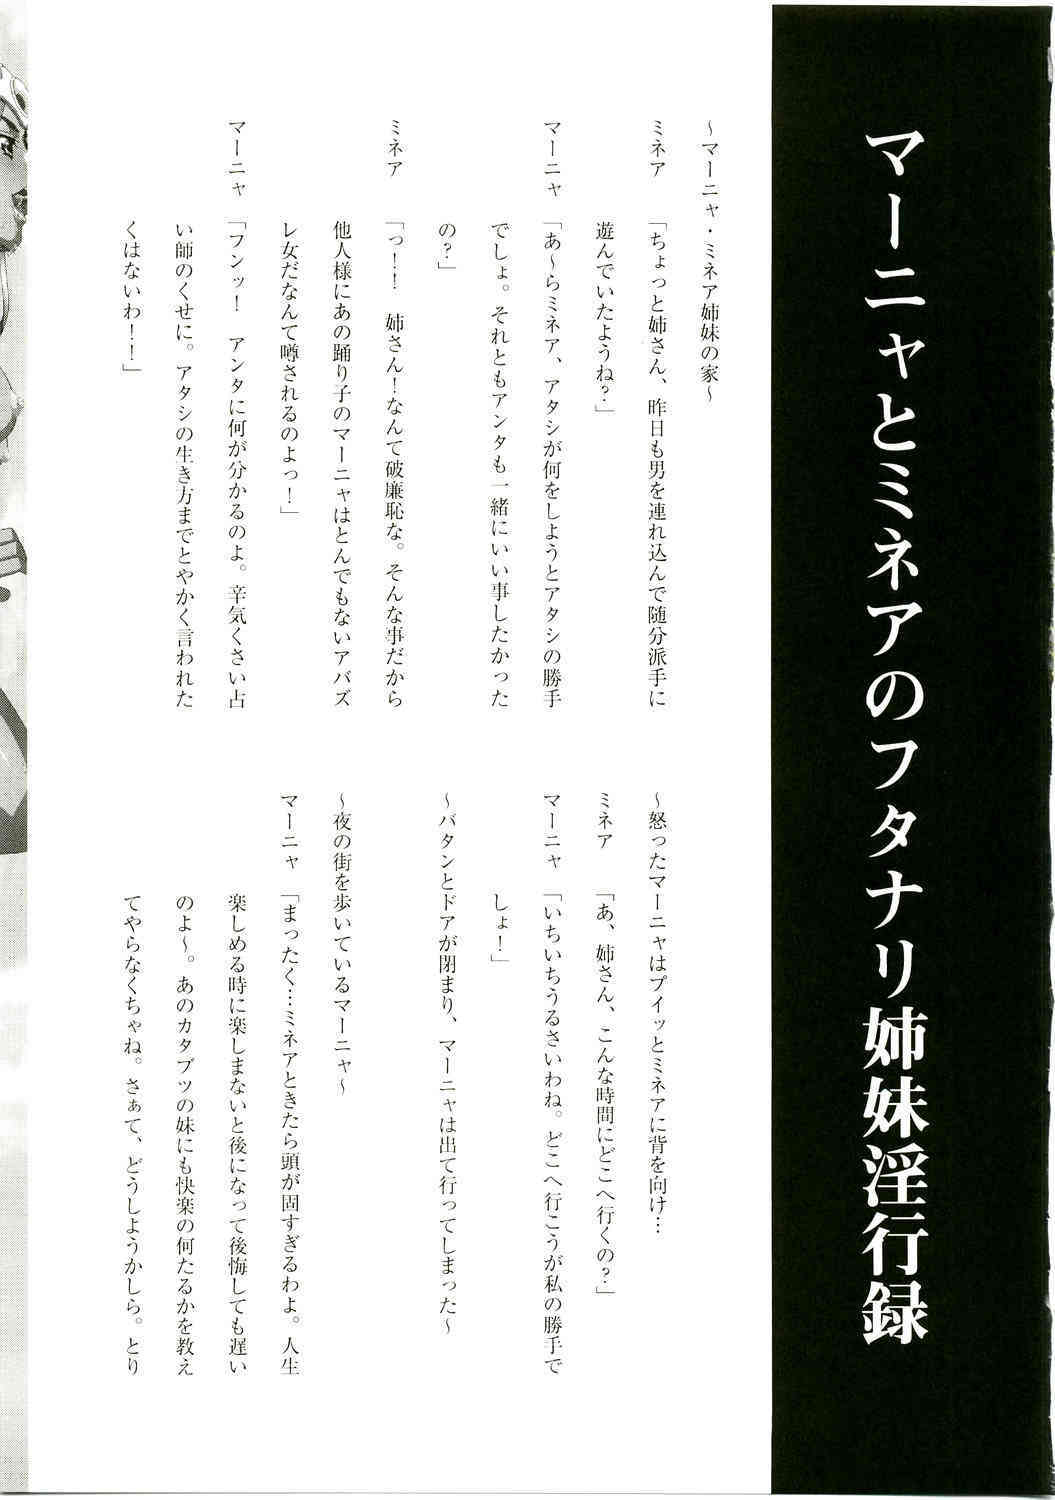 マーニャとミネアのフタナリ姉妹淫行録
～マーニャ・ミネア姉妹の家～
ミネア 「ちょっと姉さん、昨日も男を連れ込んで随分派手に
遊んでいたようね?」
マーニャ 「あ～らミネア、アタシが何をしようとアタシの勝手
でしょ。それともアンタも一緒にいい事したかった
の?」
ミネア 「っ!! 姉さん!なんて破廉恥な。そんな事だから
他人様にあの踊り子のマーニャはとんでもないアバズ
レ女だなんて噂されるのよっ!」
マーニャ 「フンッ! アンタに何が分かるのよ。辛気くさい占
い師のくせに。アタシの生き方までとやかく言われた
くはないわ!!」
～怒ったマーニャはプイッとミネアに背を向け…
ミネア 「あ、姉さん、こんな時間にどこへ行くの?」
マーニャ 「いちいちうるさいわね。どこへ行こうが私の勝手で
しょ!」
～バタンとドアが閉まり、マーニャは出て行ってしまった～
～夜の街を歩いているマーニャ～
マーニャ 「まったく…ミネアときたら頭が固すぎるわよ。人生
楽しめる時に楽しまないと後になって後悔しても遅い
のよ～。あのカタブツの妹にも快楽の何たるかを教え
てやらなくちゃね。さぁて、どうしようかしら。とり